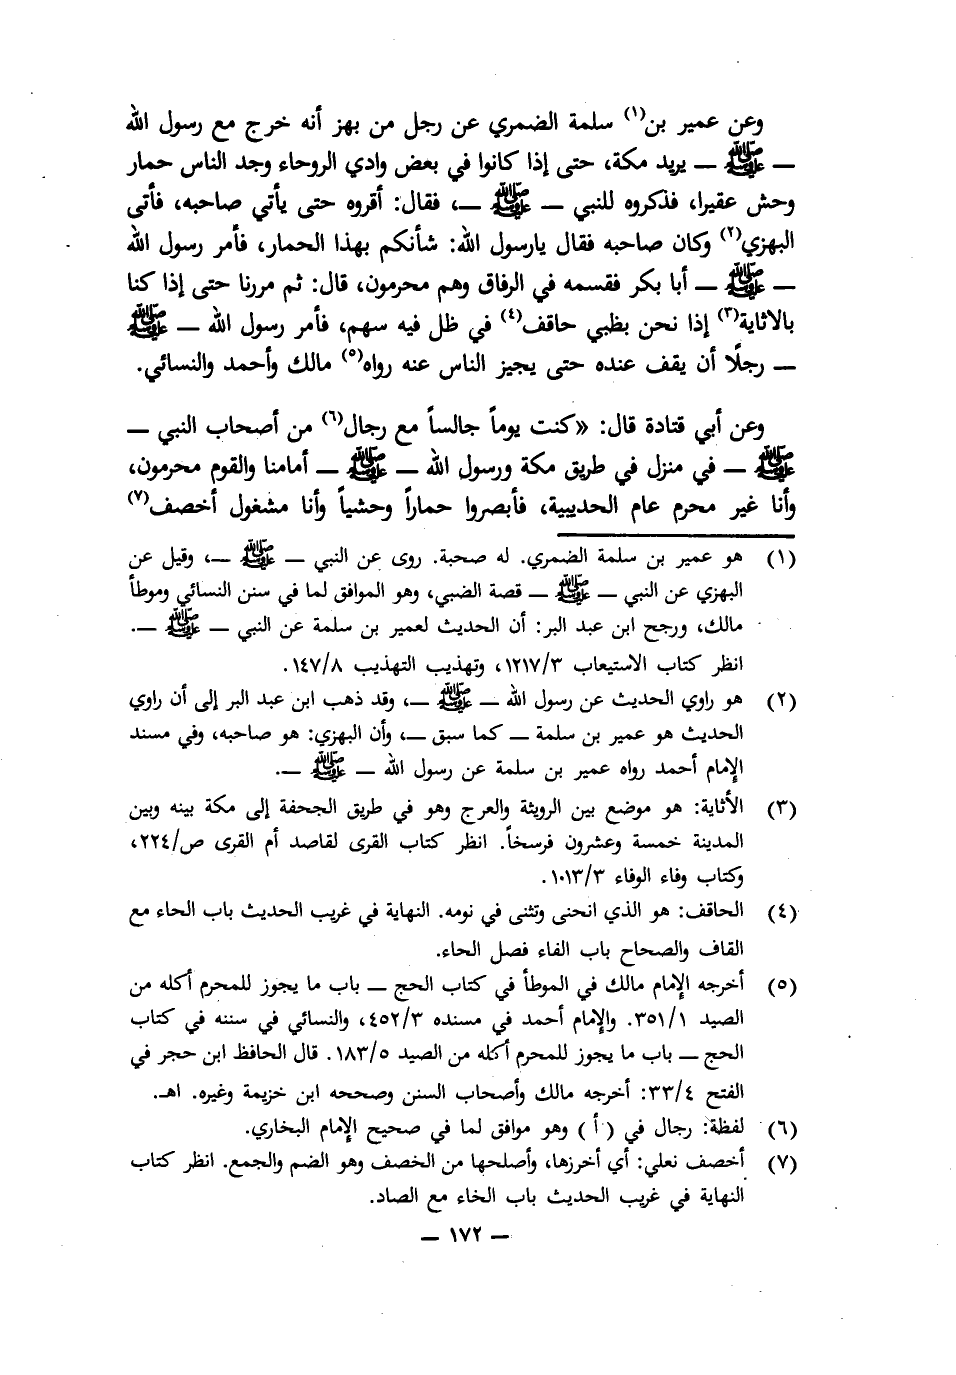 وعن عمير بن(١) سلمة الضمري عن رجل من بهز أنه خرج مع رسول الله
— ﷺ — يريد مكة، حتى إذا كانوا في بعض وادي الروحاء وجد الناس حمار
وحش عقيرا، فذكروه للنبي — ﷺ —، فقال: أقروه حتى يأتي صاحبه، فأتى
البهزي(٢) وكان صاحبه فقال يارسول الله: شأنكم بهذا الحمار، فأمر رسول الله
— ﷺ — أبا بكر فقسمه في الرفاق وهم محرمون، قال: ثم مررنا حتى إذا كنا
بالاثاية(٣) إذا نحن بظبي حاقف(٤) في ظل فيه سهم، فأمر رسول الله — ﷺ
— رجلًا أن يقف عنده حتى يجيز الناس عنه رواه(٥) مالك وأحمد والنسائي.
وعن أبي قتادة قال: «كنت يوماً جالساً مع رجال(٦) من أصحاب النبي —
ﷺ — في منزل في طريق مكة ورسول الله — ﷺ — أمامنا والقوم محرمون،
وأنا غير محرم عام الحديبية، فأبصروا حماراً وحشياً وأنا مشغول أخصف(٧)
(١) هو عمير بن سلمة الضمري. له صحبة. روى عن النبي — ﷺ —، وقيل عن
البهزي عن النبي — ﷺ — قصة الضبي، وهو الموافق لما في سنن النسائي وموطأ
مالك، ورجح ابن عبد البر: أن الحديث لعمير بن سلمة عن النبي — ﷺ —.
انظر كتاب الاستيعاب ١٢١٧/٣، وتهذيب التهذيب ١٤٧/٨.
(٢) هو راوي الحديث عن رسول الله — ﷺ —، وقد ذهب ابن عبد البر إلى أن راوي
الحديث هو عمير بن سلمة — كما سبق —، وأن البهزي: هو صاحبه، وفي مسند
الإمام أحمد رواه عمير بن سلمة عن رسول الله — ﷺ —.
(٣) الأثاية: هو موضع بين الرويثة والعرج وهو في طريق الجحفة إلى مكة بينه وبين
المدينة خمسة وعشرون فرسخاً. انظر كتاب القرى لقاصد أم القرى ص/٢٢٤،
وكتاب وفاء الوفاء ١٠١٣/٣.
(٤) الحاقف: هو الذي انحنى وتثنى في نومه. النهاية في غريب الحديث باب الحاء مع
القاف والصحاح باب الفاء فصل الحاء.
(٥) أخرجه الإمام مالك في الموطأ في كتاب الحج — باب ما يجوز للمحرم أكله من
الصيد ٣٥١/١. والإمام أحمد في مسنده ٤٥٢/٣، والنسائي في سننه في كتاب
الحج — باب ما يجوز للمحرم أكله من الصيد ١٨٣/٥. قال الحافظ ابن حجر في
الفتح ٣٣/٤: أخرجه مالك وأصحاب السنن وصححه ابن خزيمة وغيره. اهـ.
(٦) لفظة: رجال في ( أ ) وهو موافق لما في صحيح الإمام البخاري.
(٧) أخصف نعلي: أي أخرزها، وأصلحها من الخصف وهو الضم والجمع. انظر كتاب
النهاية في غريب الحديث باب الخاء مع الصاد.
— ١٧٢ —